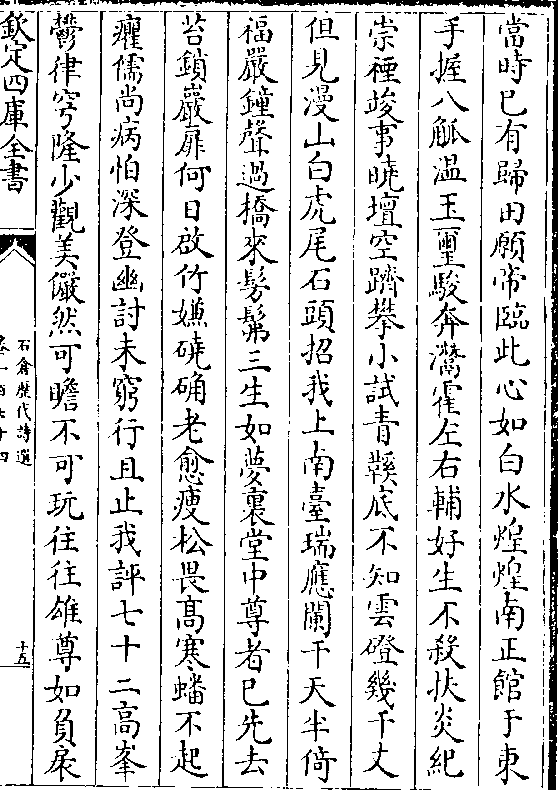 當時已有歸田願帝臨此心如白水煌煌南正館于東
手握八觚溫玉璽駿奔灊霍左右輔好生不殺扶炎紀
崇禋竣事曉壇空躋攀小試青鞵底不知雲磴幾千丈
但見漫山白虎尾石頭招我上南臺瑞應闌干天半倚
福嚴鐘聲過橋來髣髴三生如夢裏堂中尊者已先去
苔鎖巖扉何日啟竹嫌磽确老愈瘦松畏高寒蟠不起
癯儒尚病怕深登幽討未窮行且止我評七十二高峯
鬱律穹隆少觀美儼然可瞻不可玩往往雄尊如負扆
欽定四庫全書
石倉歷代詩選
卷一百七十四
十五